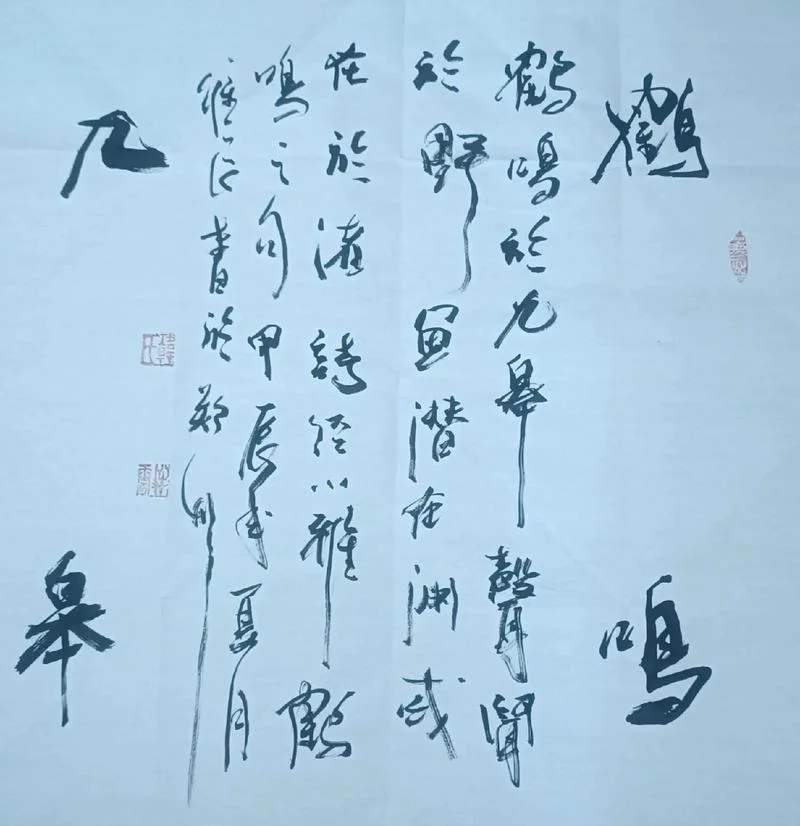 鶴鳴
鶴鳴於九皋聲聞
於野魚潜在淵或
在於渚詩經小雅鶴
鳴之句甲辰年夏月
書於郑州
九皋